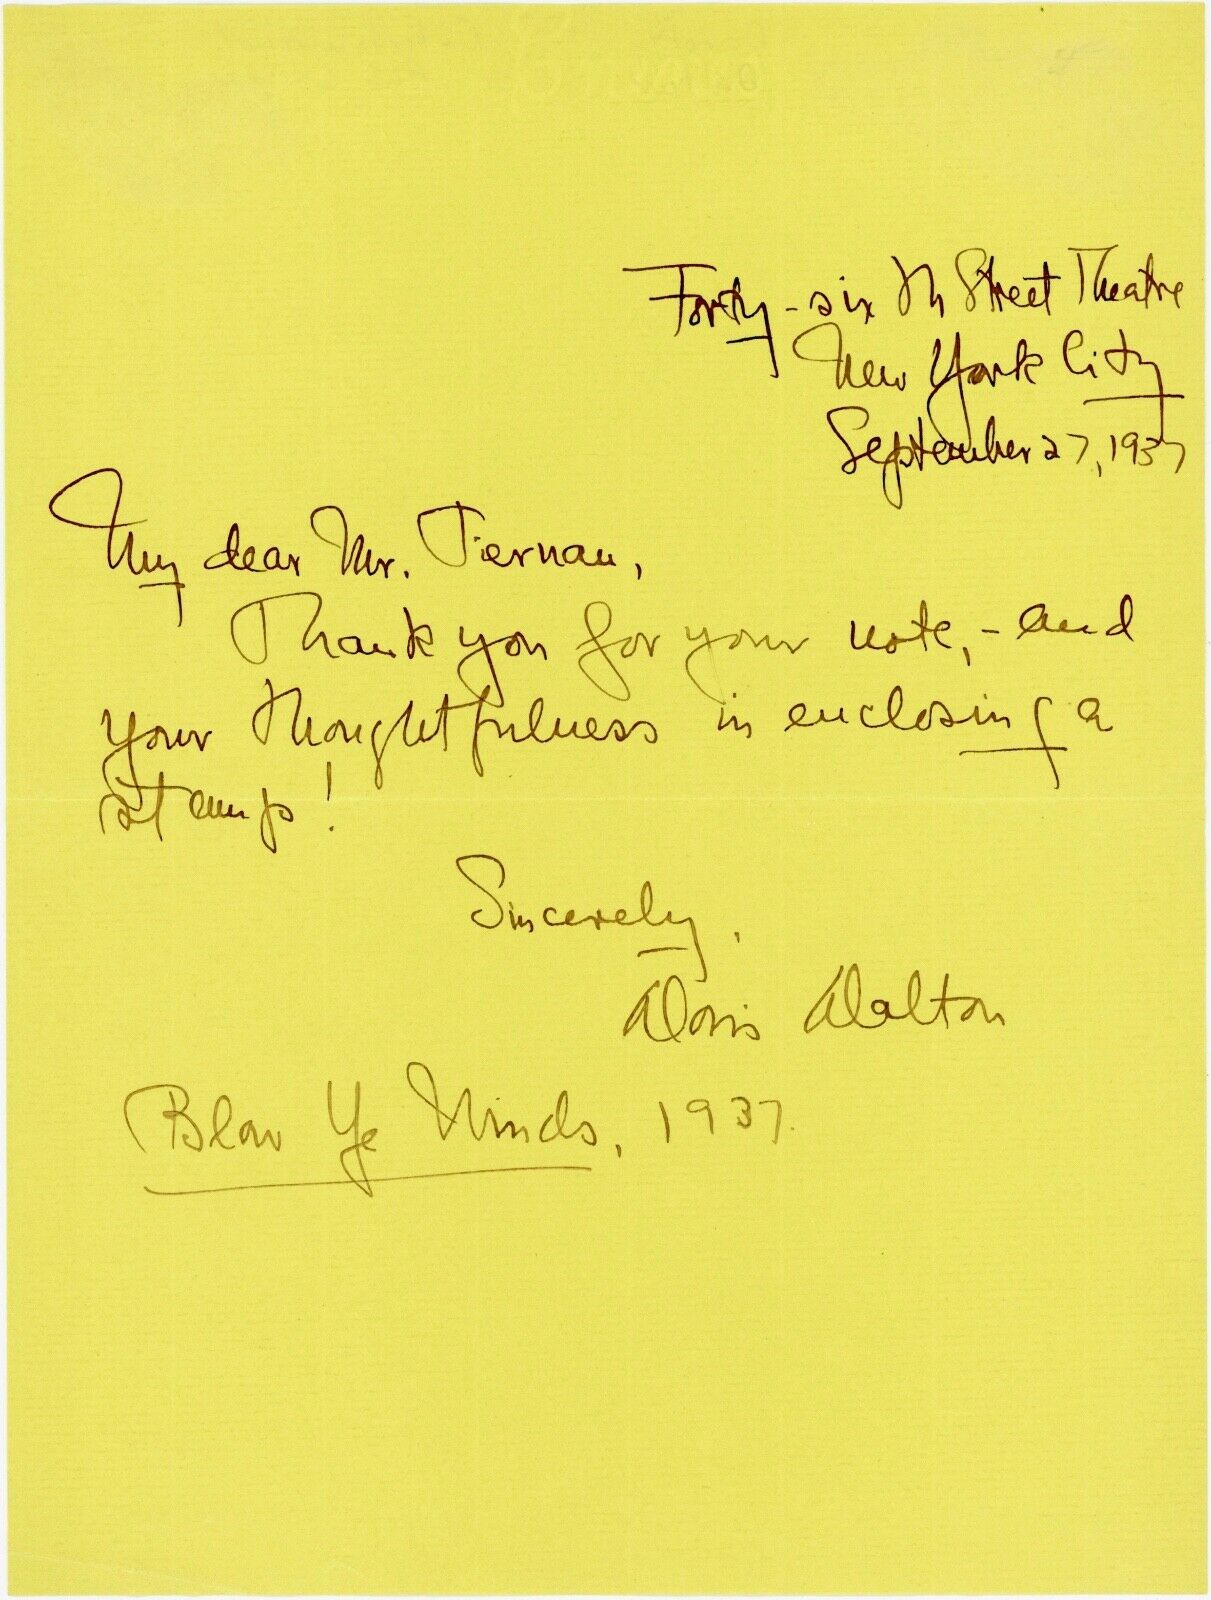 Forty-sixth Street Theatre
New York City
September 27, 1937
My dear Mr. Tiernan,
Thank you for your note, - and
your thoughtfulness in enclosing a
stamp!
Sincerely,
Doris Dalton
Blow Ye Winds, 1937.